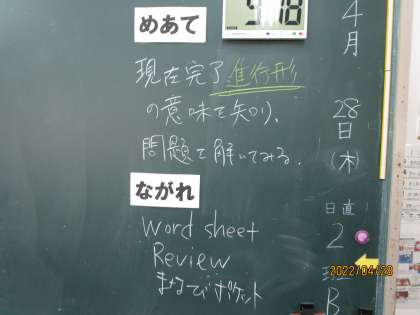 めあて
現在完了進行形
の意味を知り、
問題を解いてみる.
ながれ
Word sheet
Review
まなびポケット
4月
28日(木)
日直
2
班
B
9:18
2022/04/28